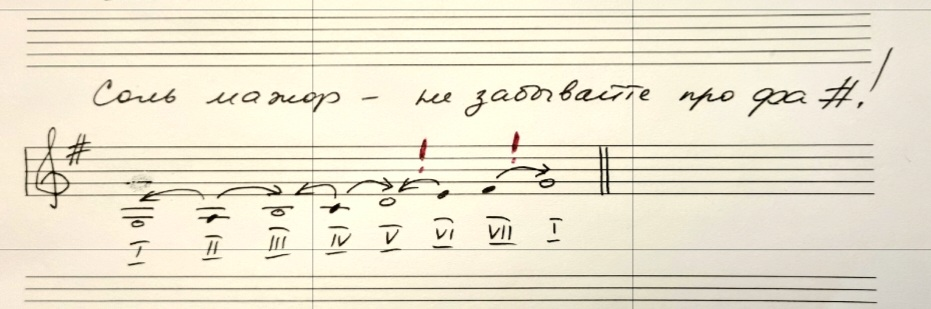 Соль мажор - не забывайте про фа #!
! !
I II III IV V VI VII I